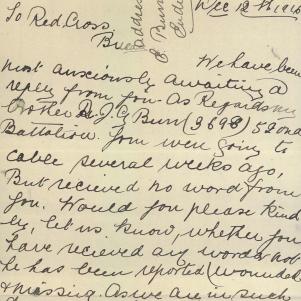 Dec 12th 1916
To Red Cross,
We have been
most anxiously awaiting a
reply from you. As Regards my
brother A.J.G Burn (3698) 52ond
Battalion. You were going to
cable several weeks ago,
But recieved no word from
you. Would you please Kind
ly, let us know, whether you
have recieved any word or not
he has been reported Wounded
& missing. As we are in such